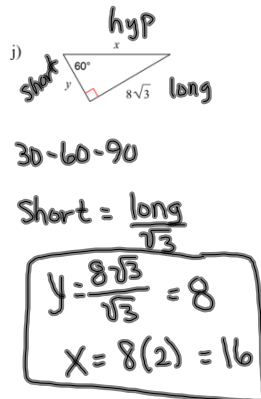 hyp
x
j)
short
60°
y
8√3
long
30-60-90
Short = long/√3
y = 8√3/√3 = 8
x = 8(2) = 16